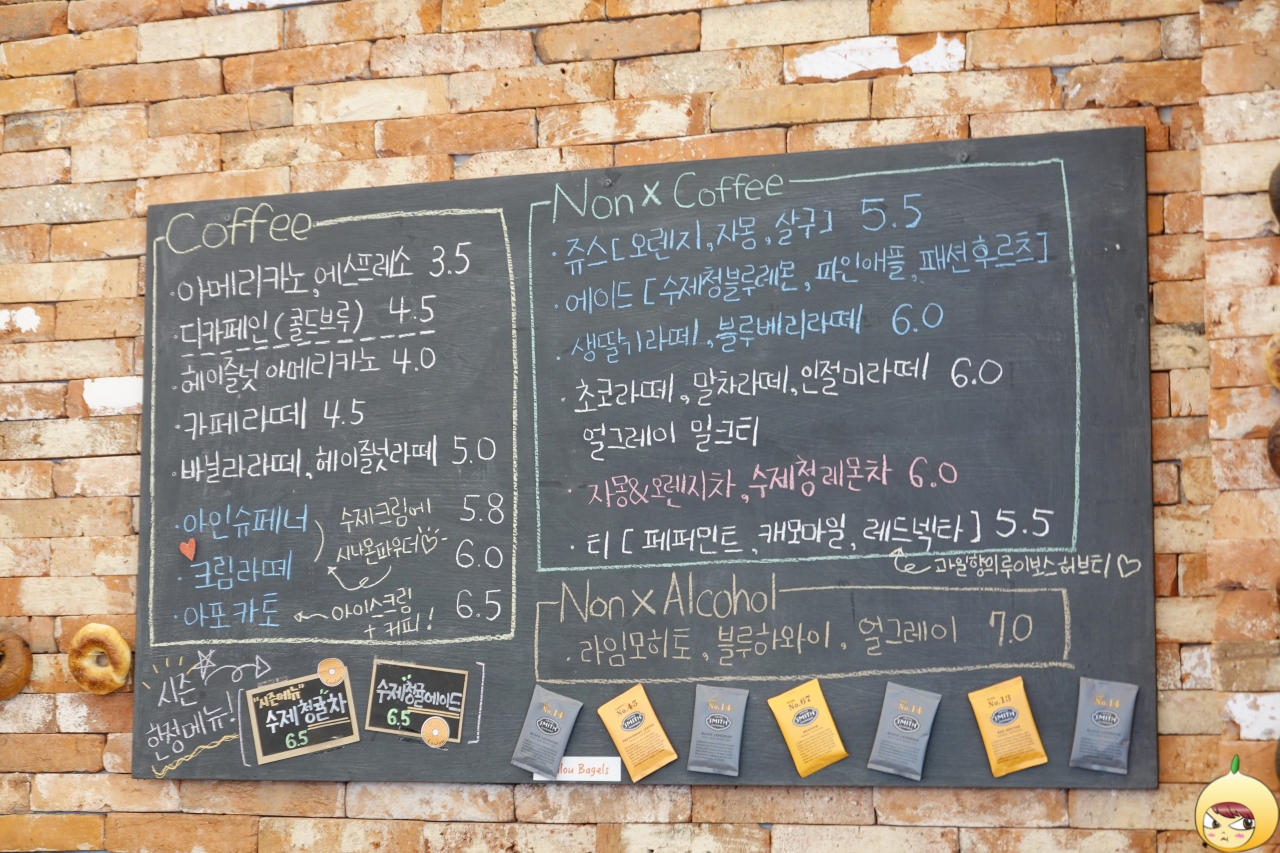 Coffee
·아메리카노, 에스프레소 3.5
·디카페인(콜드브루) 4.5
·헤이즐넛 아메리카노 4.0
·카페라떼 4.5
·바닐라라떼, 헤이즐넛라떼 5.0
·아인슈페너 ) 수제크림에 5.8
·크림라떼 시나몬파우더 6.0
·아포카토 ← 아이스크림 + 커피! 6.5
시즌
한정메뉴!
"시즌메뉴"
수제청귤차
6.5
수제청귤에이드
6.5
Non x Coffee
·쥬스[오렌지, 자몽, 살구] 5.5
·에이드[수제청블루레몬, 파인애플, 패션후르츠]
·생딸기라떼, 블루베리라떼 6.0
·초코라떼, 말차라떼, 인절미라떼 6.0
얼그레이 밀크티
·자몽&오렌지차, 수제청레몬차 6.0
·티[페퍼민트, 캐모마일, 레드넥타] 5.5
과일향의루이보스허브티♡
Non x Alcohol
·라임모히토, 블루하와이, 얼그레이 7.0
No.14
SMITH
No.45
SMITH
No.14
SMITH
No.67
SMITH
No.14
SMITH
No.13
SMITH
No.14
SMITH
lou Bagels